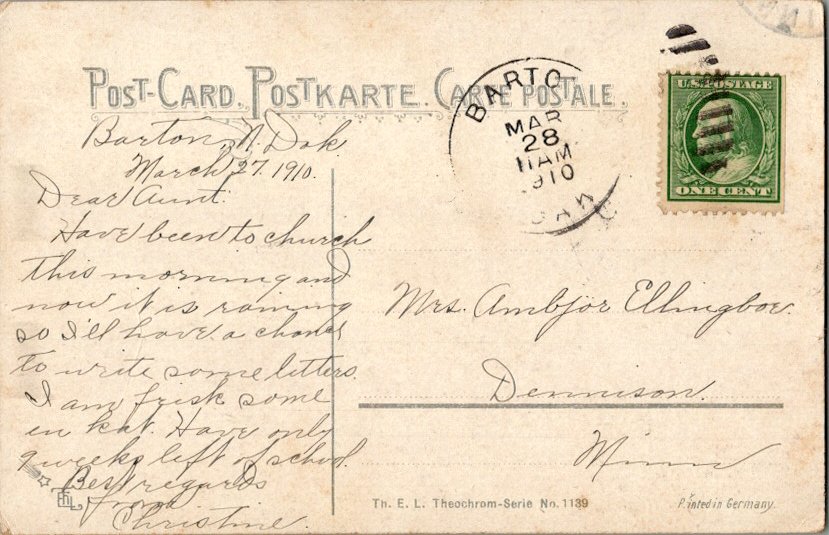 POST-CARD. POSTKARTE. CARTE POSTALE.
BARTO
MAR
28
11AM
1910
DAK
U.S. POSTAGE
ONE CENT
Barton, N. Dak
March 27. 1910.
Dear Aunt.
Have been to church
this morning and
now it is raining
so I'll have a chance
to write some letters.
I am frisk some
en kat. Have only
9 weeks left of school.
Best regards
from
Christine.
Mrs. Ambjor Ellingboe.
Dennison.
Minn
Th. E. L. Theochrom-Serie No. 1139
Printed in Germany.